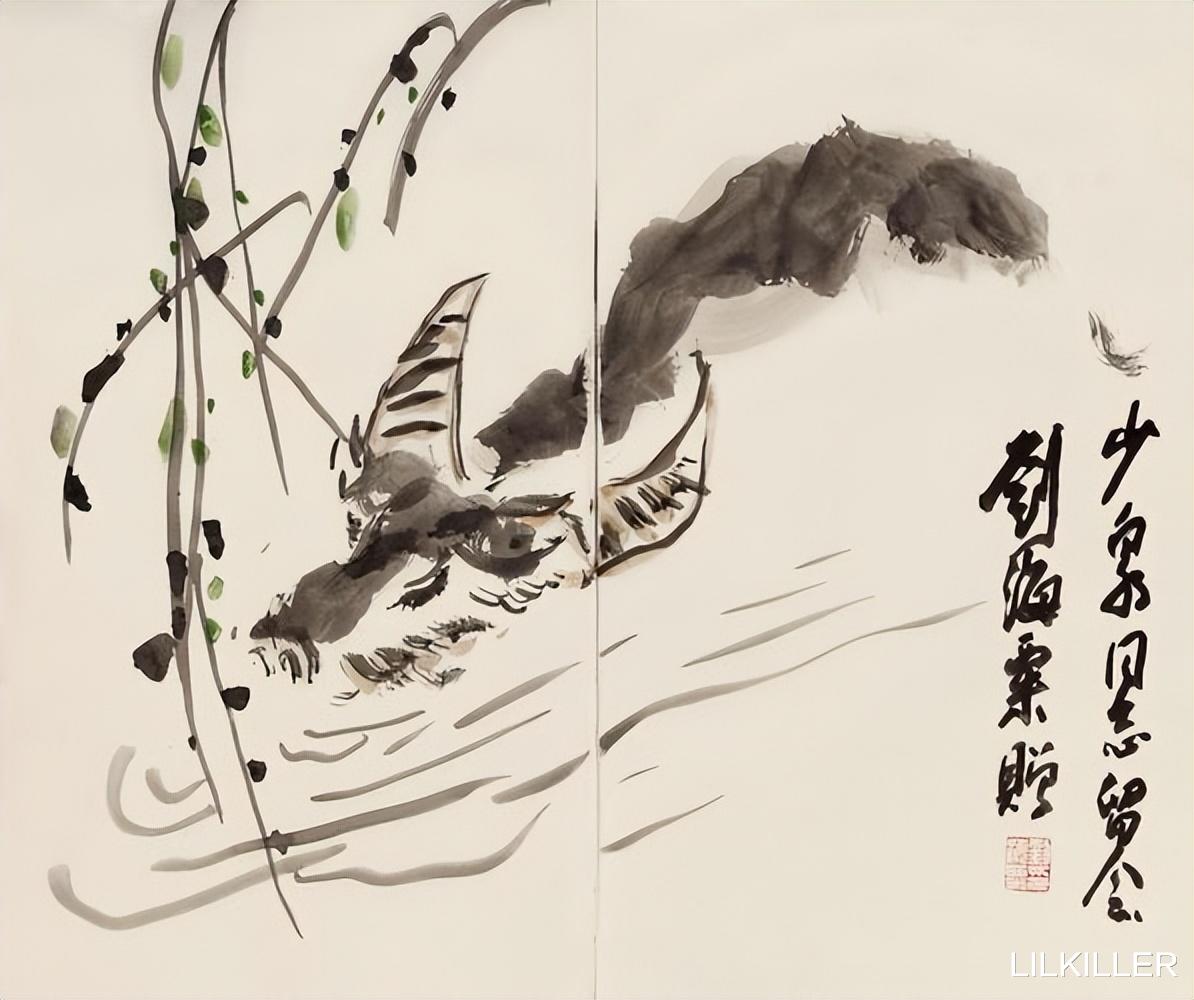 少泉同志留念
劉海粟贈
LILKILLER